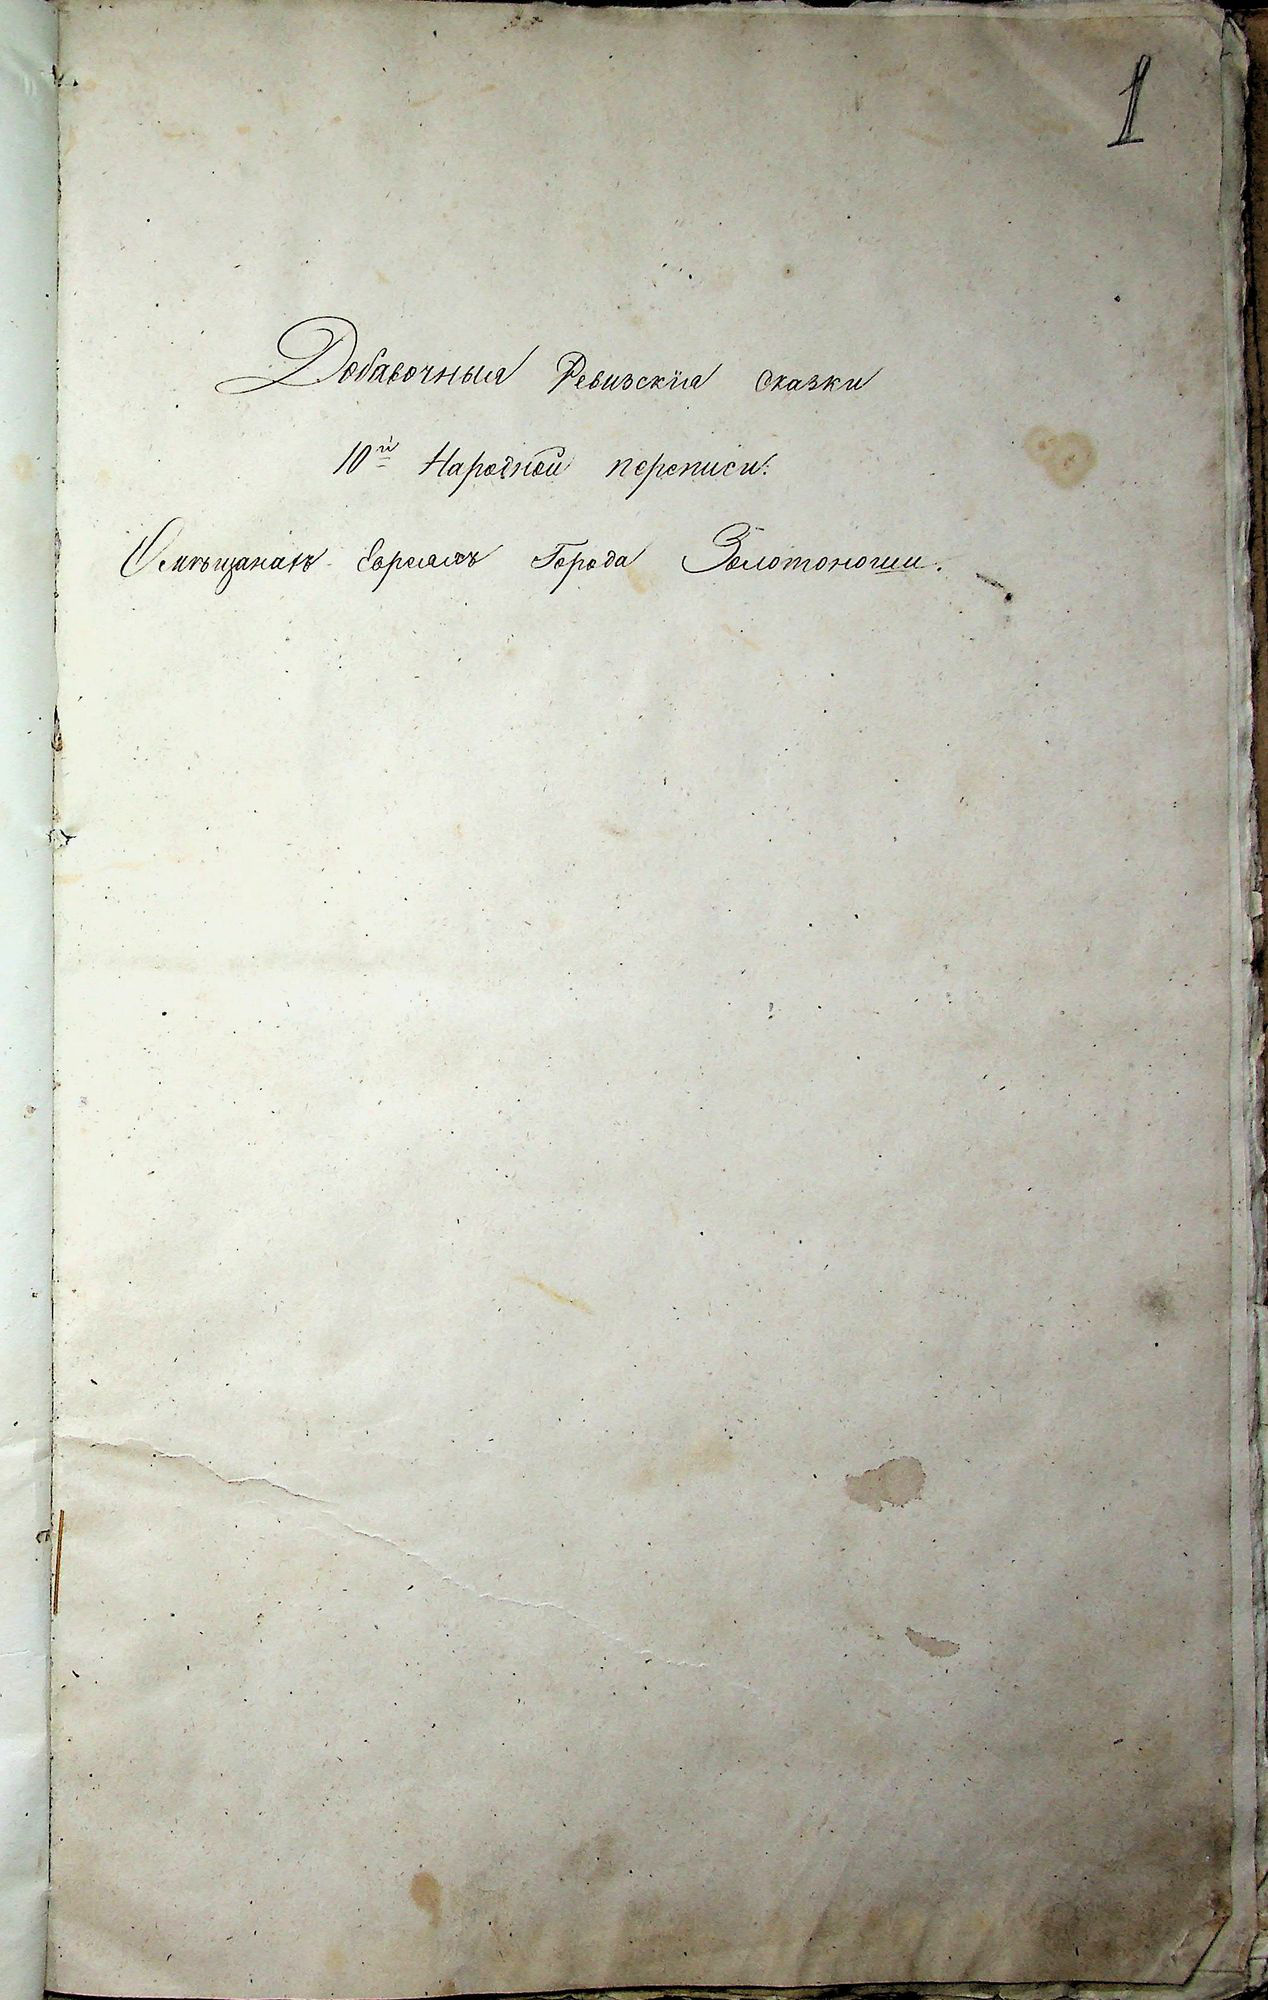 1
Добавочныя Ревизскія сказки
10й Народной переписи:
О мѣщанахъ Евреяхъ Города Золотоноши.